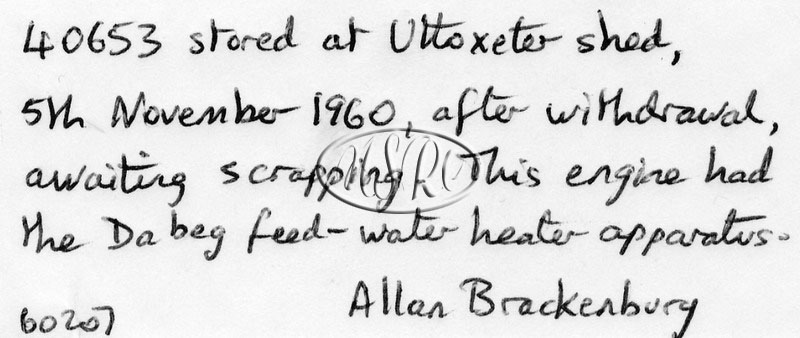 40653 stored at Uttoxeter shed,
5th November 1960, after withdrawal,
awaiting scrapping. This engine had
the Dabeg feed-water heater apparatus.
Allan Brackenbury
60207
MSRC